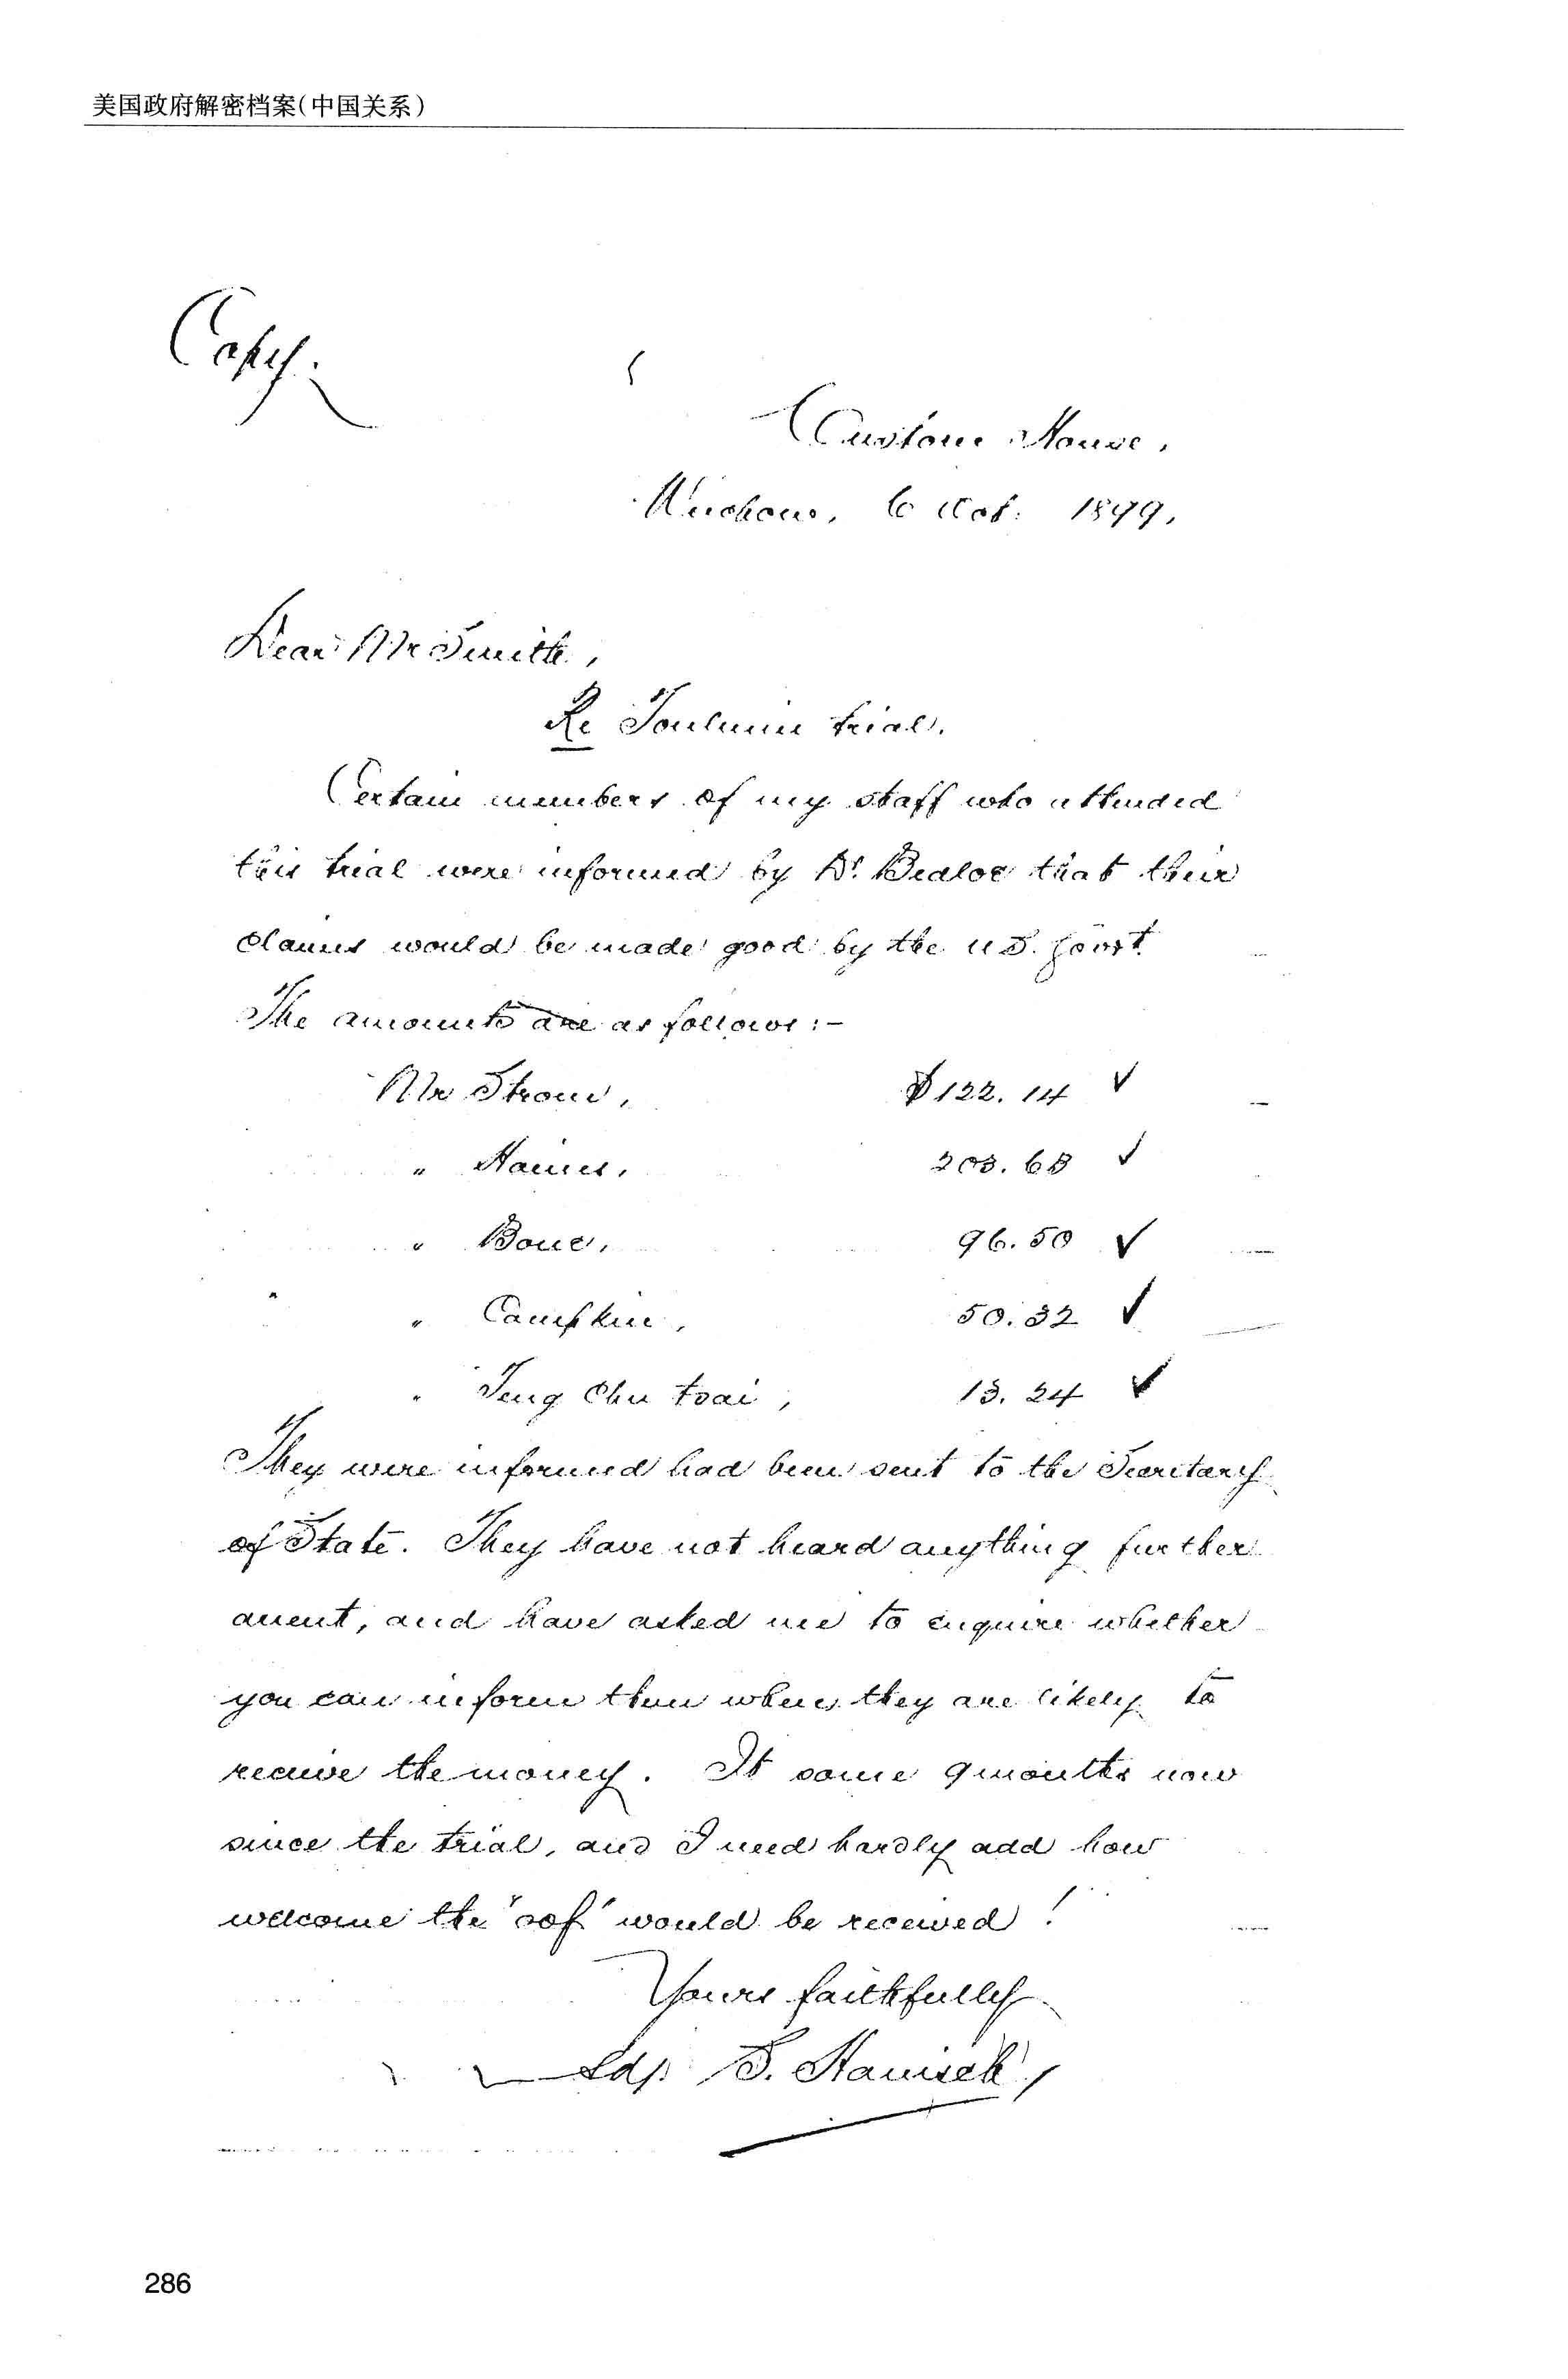 美国政府解密档案(中国关系)
Copy.
Custom House,
Wuchow, 6 Oct: 1899,
Dear Mr Smith,
Re Toulmin trial.
Certain members of my staff who attended
this trial were informed by Dr. Bedloe that their
claims would be made good by the U S. Govt
The amounts are as follows:-
Mr Strom, $122.14
" Haines, 203.68
" Bone, 96.50
" Campkin, 50.32
" Teng Chu tsai, 13.24
They were informed had been sent to the Secretary
of State. They have not heard anything further
anent, and have asked me to enquire whether
you can inform them when they are likely to
receive the money. It some 9 months now
since the trial, and I need hardly add how
welcome the "oof" would be received!
Yours faithfully
S.
286